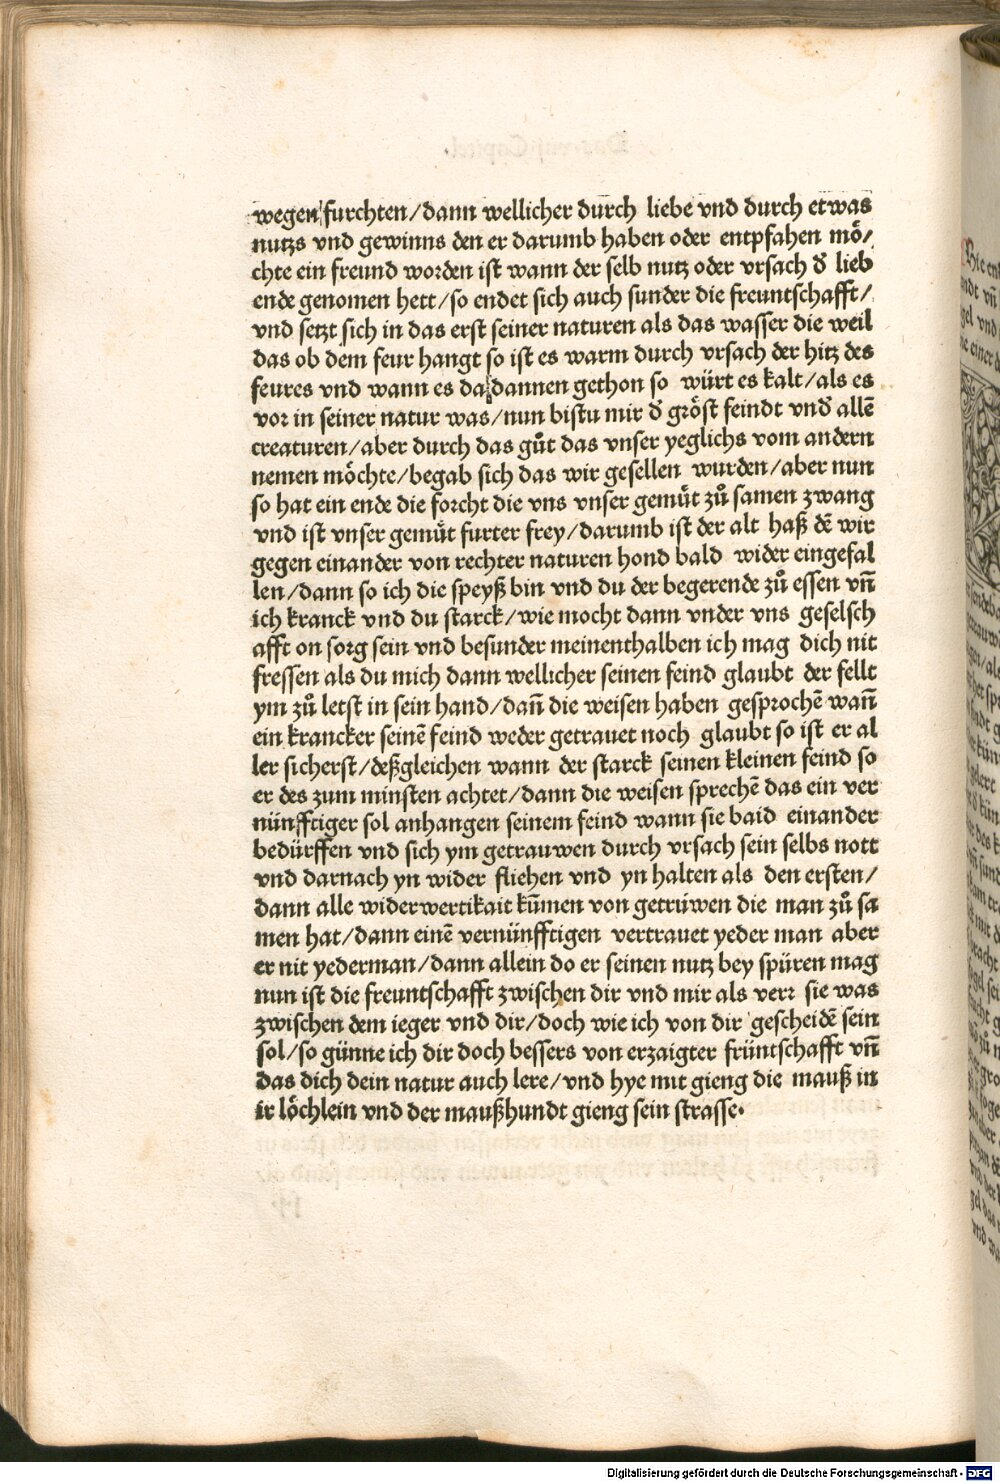 wegen furchten/dann wellicher durch liebe vnd durch etwas
nutzs vnd gewinns den er darumb haben oder entpfahen mö/
chte ein freund worden ist wann der selb nutz oder vrsach d̕ lieb
ende genomen hett/so endet sich auch sunder die freuntschafft/
vnd setzt sich in das erst seiner naturen als das wasser die weil
das ob dem feur hangt so ist es warm durch vrsach der hitz des
feures vnd wann es da dannen gethon so würt es kalt/als es
vor in seiner natur was/nun bistu mir d̕ gröst feindt vnd̕ allē
creaturen/aber durch das gůt das vnser yeglichs vom andern
nemen möchte/begab sich das wir gesellen wurden/aber nun
so hat ein ende die forcht die vns vnser gemüt zů samen zwang
vnd ist vnser gemüt furter frey/darumb ist der alt haß dē wir
gegen einander von rechter naturen hond bald wider eingefal
len/dann so ich die speyß bin vnd du der begerende zů essen vn̄
ich kranck vnd du starck/wie mocht dann vnder vns geselsch
afft on sorg sein vnd besunder meinenthalben ich mag dich nit
fressen als du mich dann wellicher seinen feind glaubt der fellt
ym zů letst in sein hand/dan̄ die weisen haben gesprochē wan̄
ein krancker seinē feind weder getrauet noch glaubt so ist er al
ler sicherst/deßgleichen wann der starck seinen kleinen feind so
er des zum minsten achtet/dann die weisen sprechē das ein ver
nünfftiger sol anhangen seinem feind wann sie baid einander
bedürffen vnd sich ym getrauwen durch vrsach sein selbs nott
vnd darnach yn wider fliehen vnd yn halten als den ersten/
dann alle widerwertikait kūmen von getrüwen die man zů sa
men hat/dann einē vernünfftigen vertrauet yeder man aber
er nit yederman/dann allein do er seinen nutz bey spüren mag
nun ist die freuntschafft zwischen dir vnd mir als verr sie was
zwischen dem ieger vnd dir/doch wie ich von dir gescheidē sein
sol/so günne ich dir doch bessers von erzaigter früntschafft vn̄
das dich dein natur auch lere/vnd hye mit gieng die mauß in
ir löchlein vnd der maußhundt gieng sein strasse.
Digitalisierung gefördert durch die Deutsche Forschungsgemeinschaft - DFG